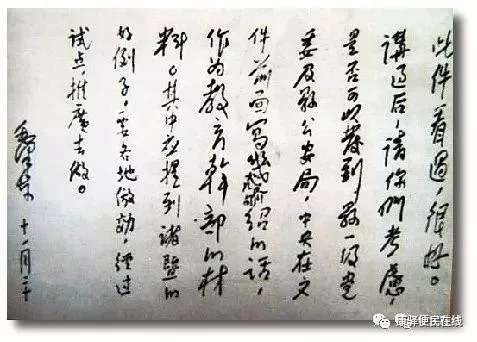 此件看过，很好。
講过后，请你们考慮，
是否可以發到縣一级党
委及縣公安局，中央在文
件前面寫幾句介绍的话，
作为教育幹部的材
料。其中应提到諸暨的
好例子，要各地仿効，经过
试点推廣去做。
毛泽东
十一月二十
驿便民在线